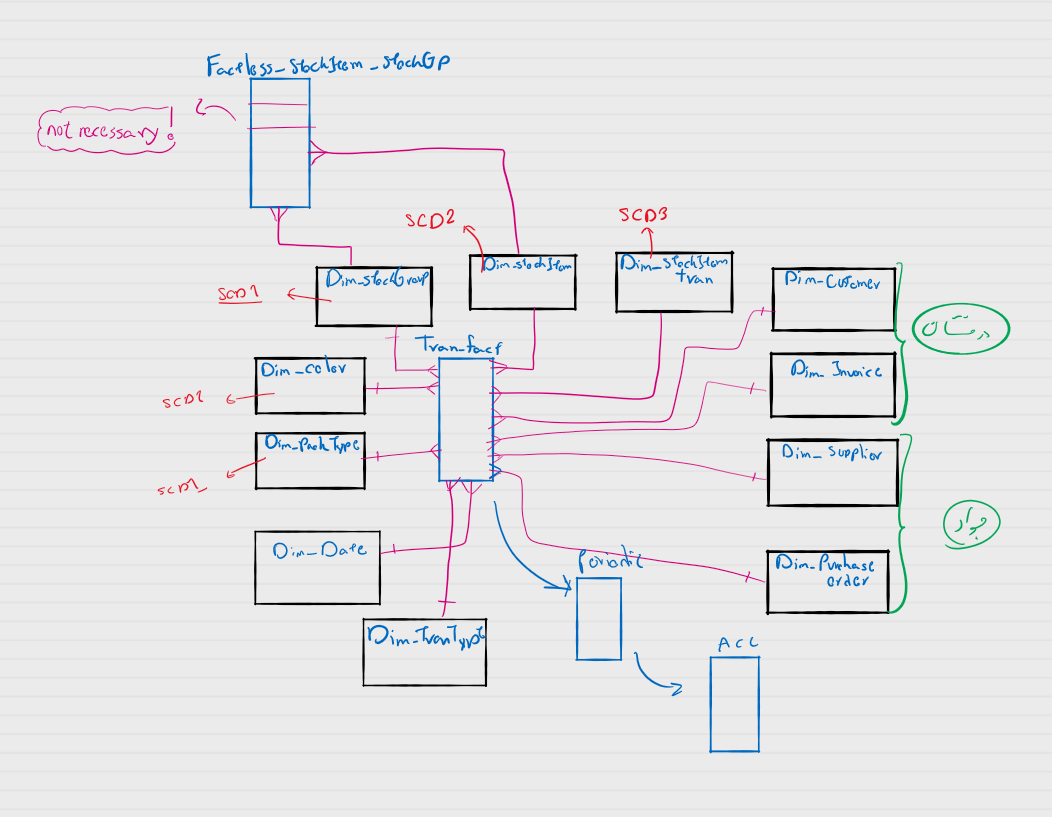 Factless_StockItem_StockGP
not necessary!
SCD2
SCD3
Dim_StockGroup
Dim_StockItem
Dim_StockItem
tran
Dim_Customer
SCD1
Tran_fact
Dim_color
Dim_Invoice
SCD2
Dim_PackType
Dim_Supplier
SCD1
Dim_Date
Periodic
Dim_Purchase
order
جواد
Dim_TranType
ACC